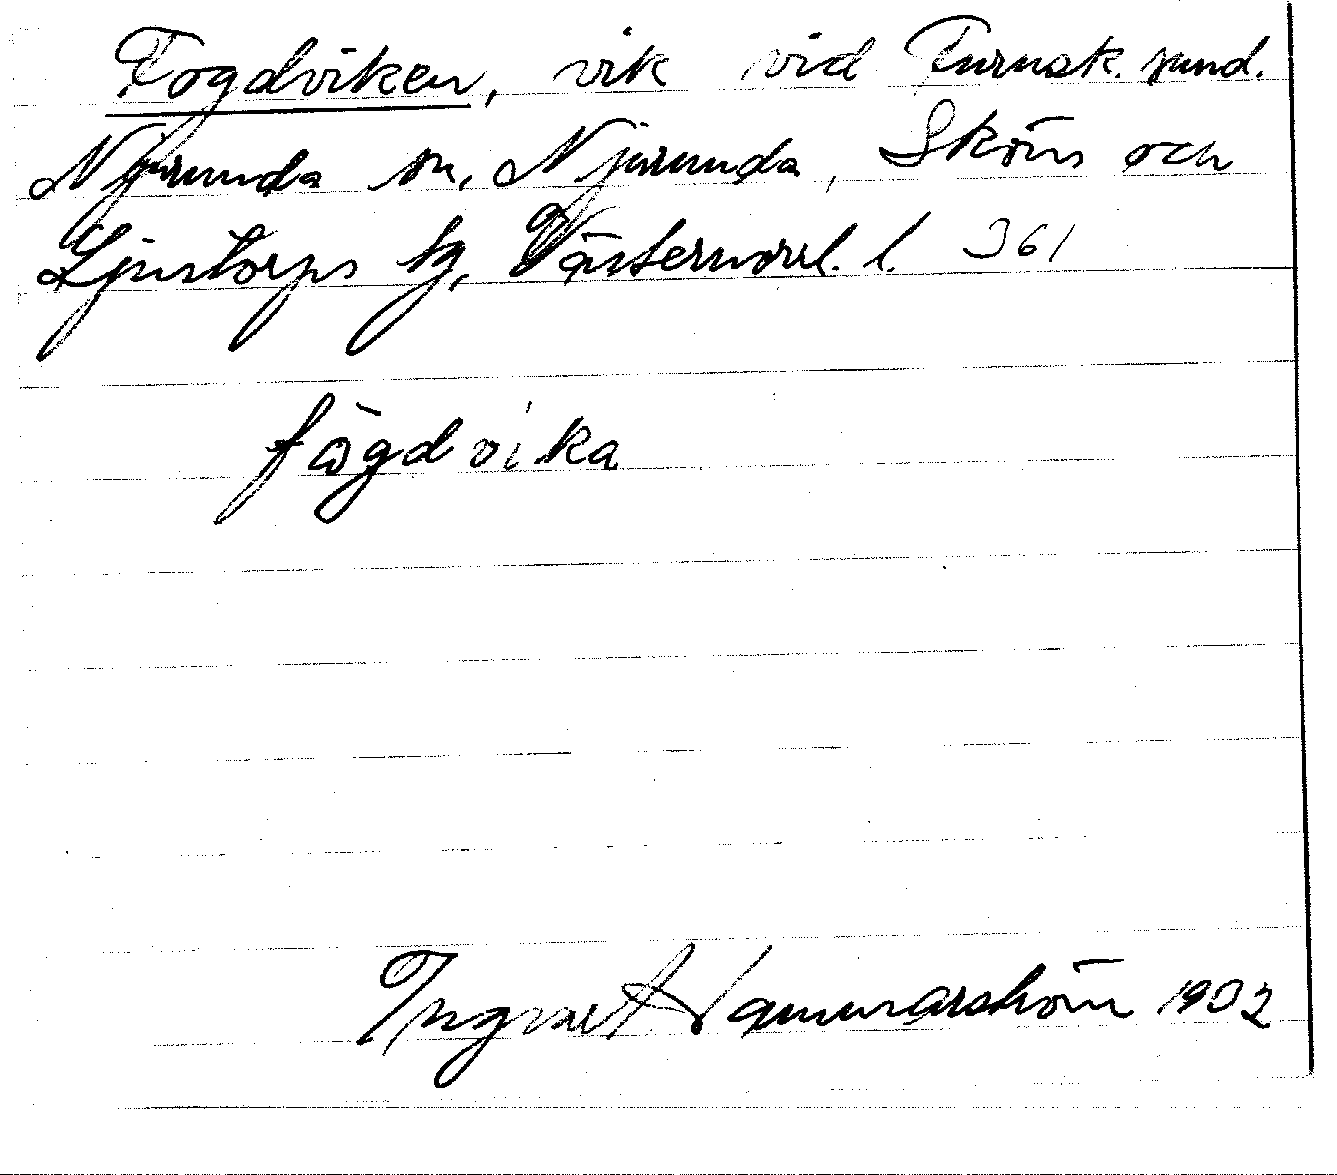 Fogdviken, vik vid Furusk. sund.
Njurunda sn, Njurunda, Sköns och
Ljustorps tg, Västernorrl. l. 361
fògdvika
Ingvart Hammarström 1902